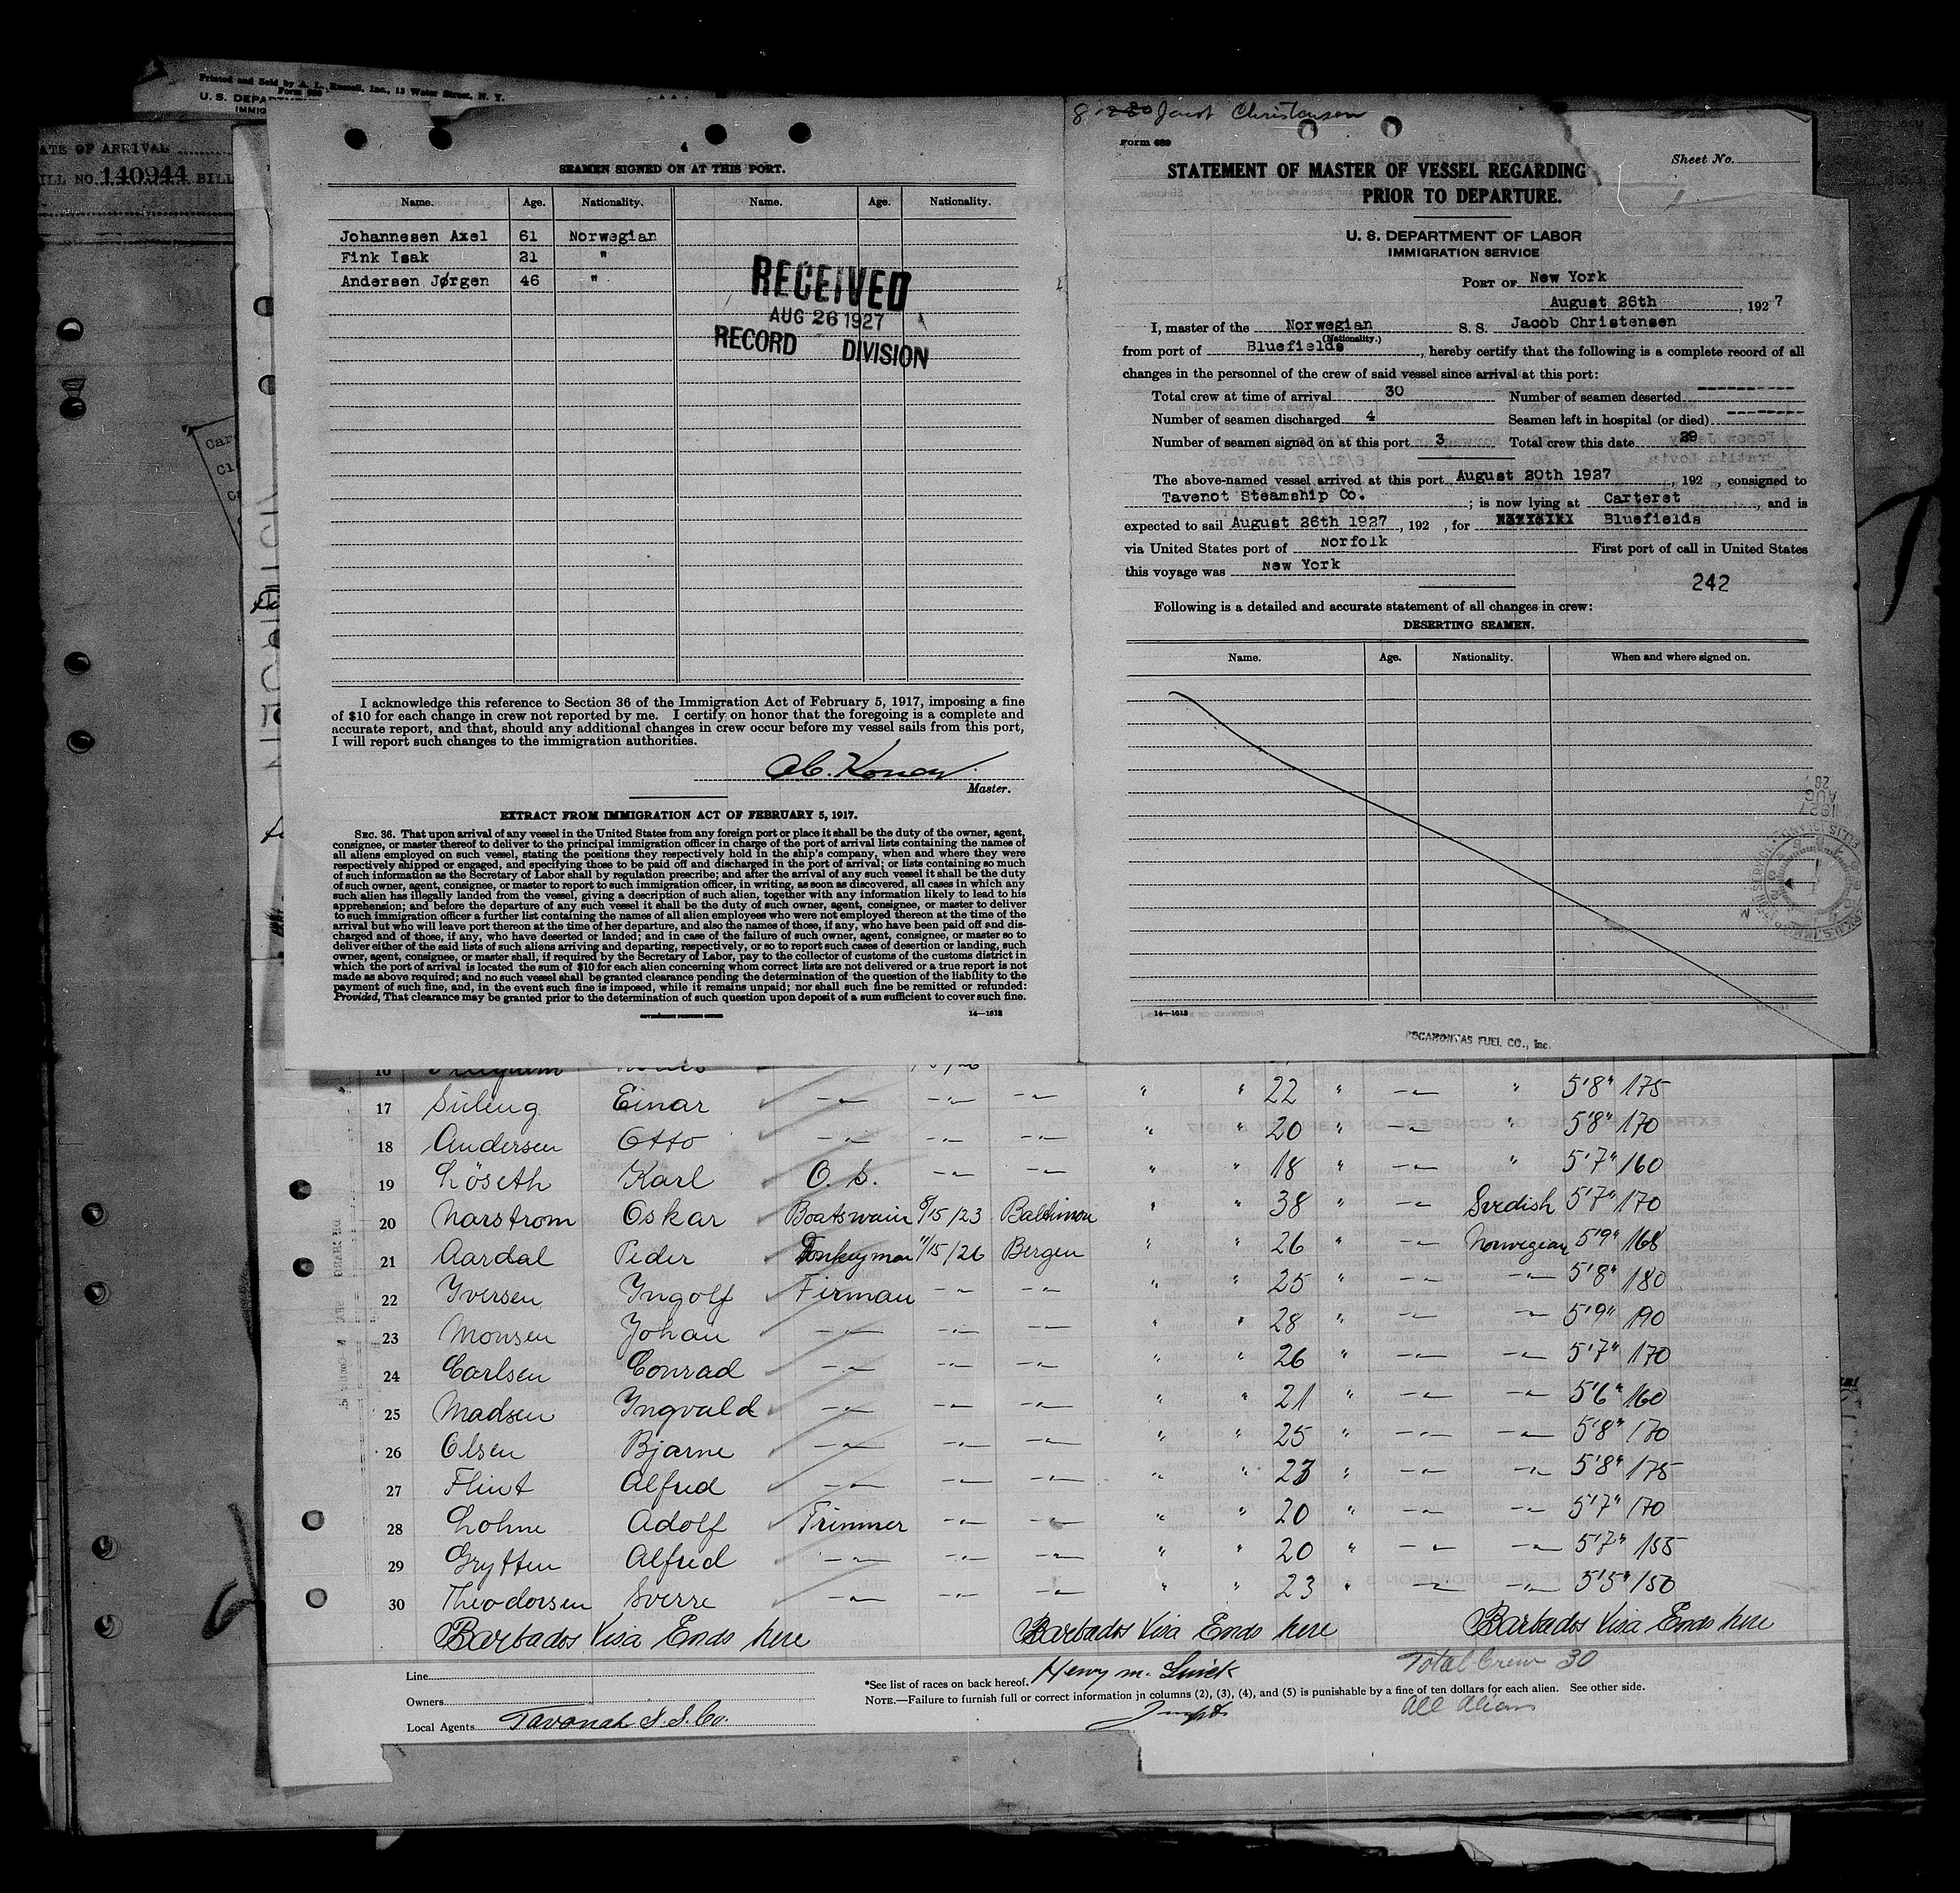 Printed and Sold by A. L. Russell, Inc., 13 Water Street, N. Y.
ATE OF ARRIVAL
ILL NO. 140944 BILL
4
SEAMEN SIGNED ON AT THIS PORT.
Name. Age. Nationality. Name. Age. Nationality.
Johannesen Axel 61 Norwegian
Fink Isak 21 "
Andersen Jørgen 46 "
RECEIVED
AUG 26 1927
RECORD DIVISION
I acknowledge this reference to Section 36 of the Immigration Act of February 5, 1917, imposing a fine
of $10 for each change in crew not reported by me. I certify on honor that the foregoing is a complete and
accurate report, and that, should any additional changes in crew occur before my vessel sails from this port,
I will report such changes to the immigration authorities.
Master.
EXTRACT FROM IMMIGRATION ACT OF FEBRUARY 5, 1917.
SEC. 36. That upon arrival of any vessel in the United States from any foreign port or place it shall be the duty of the owner, agent,
consignee, or master thereof to deliver to the principal immigration officer in charge of the port of arrival lists containing the names of
all aliens employed on such vessel, stating the positions they respectively hold in the ship's company, when and where they were
respectively shipped or engaged, and specifying those to be paid off and discharged in the port of arrival; or lists containing so much
of such information as the Secretary of Labor shall by regulation prescribe; and after the arrival of any such vessel it shall be the duty
of such owner, agent, consignee, or master to report to such immigration officer, in writing, as soon as discovered, all cases in which any
such alien has illegally landed from the vessel, giving a description of such alien, together with any information likely to lead to his
apprehension; and before the departure of any such vessel it shall be the duty of such owner, agent, consignee, or master to deliver
to such immigration officer a further list containing the names of all alien employees who were not employed thereon at the time of the
arrival but who will leave port thereon at the time of her departure, and also the names of those, if any, who have been paid off and dis-
charged and of those, if any, who have deserted or landed; and in case of the failure of such owner, agent, consignee, or master so to
deliver either of the said lists of such aliens arriving and departing, respectively, or so to report such cases of desertion or landing, such
owner, agent, consignee, or master shall, if required by the Secretary of Labor, pay to the collector of customs of the customs district in
which the port of arrival is located the sum of $10 for each alien concerning whom correct lists are not delivered or a true report is not
made as above required; and no such vessel shall be granted clearance pending the determination of the question of the liability to the
payment of such fine, and, in the event such fine is imposed, while it remains unpaid; nor shall such fine be remitted or refunded:
Provided, That clearance may be granted prior to the determination of such question upon deposit of a sum sufficient to cover such fine.
GOVERNMENT PRINTING OFFICE 14—1612
Jacob Christensen
Form 689
Sheet No.
STATEMENT OF MASTER OF VESSEL REGARDING
PRIOR TO DEPARTURE.
U. S. DEPARTMENT OF LABOR
IMMIGRATION SERVICE
PORT OF New York
August 26th, 1927
I, master of the Norwegian S. S. Jacob Christensen
(Nationality.)
from port of Bluefields, hereby certify that the following is a complete record of all
changes in the personnel of the crew of said vessel since arrival at this port:
Total crew at time of arrival 30 Number of seamen deserted ---------
Number of seamen discharged 4 Seamen left in hospital (or died) ---------
Number of seamen signed on at this port 3 Total crew this date 29
The above-named vessel arrived at this port August 20th 1927, 192 , consigned to
Tavenot Steamship Co. ; is now lying at Carteret, and is
expected to sail August 26th 1927, 192 , for Bluefields
via United States port of Norfolk First port of call in United States
this voyage was New York
242
Following is a detailed and accurate statement of all changes in crew:
DESERTING SEAMEN.
Name. Age. Nationality. When and where signed on.
14—1612
POCAHONTAS FUEL CO., Inc.
16
17 Sileng Einar -"- -"- -"- " " 22 " -"- " 5'8" 175
18 Andersen Otto -"- -"- -"- " " 20 " -"- " 5'8" 170
19 Löseth Karl O. S. -"- -"- " " 18 " -"- " 5'7" 160
20 Narstrom Oskar Boatswain 8/15/23 Baltimore " " 38 " -"- Svedish 5'7" 170
21 Aardal Peder Donkeyman 11/15/26 Bergen " " 26 " -"- Norwegian 5'9" 168
22 Yversen Yngolf Firman -"- -"- " " 25 " -"- -"- 5'8" 180
23 Monsen Johan -"- -"- -"- " " 28 " -"- -"- 5'9" 190
24 Carlsen Conrad -"- -"- -"- " " 26 " -"- -"- 5'7" 170
25 Madsen Yngvald -"- -"- -"- " " 21 " -"- -"- 5'6" 160
26 Olsen Bjarne -"- -"- -"- " " 25 " -"- -"- 5'8" 170
27 Flint Alfred -"- -"- -"- " " 23 " -"- -"- 5'8" 175
28 Lohne Adolf Trimmer -"- -"- " " 20 " -"- -"- 5'7" 170
29 Grytten Alfred -"- -"- -"- " " 20 " -"- -"- 5'7" 155
30 Theodorsen Sverre -"- -"- -"- " " 23 " -"- -"- 5'5" 150
Barbados Visa Ends here Barbados Visa Ends here Barbados Visa Ends here
Line
Owners
Local Agents Tavonah S. S. Co.
*See list of races on back hereof.
Henry M.
NOTE.—Failure to furnish full or correct information in columns (2), (3), (4), and (5) is punishable by a fine of ten dollars for each alien. See other side.
Total Crew 30
All Alien